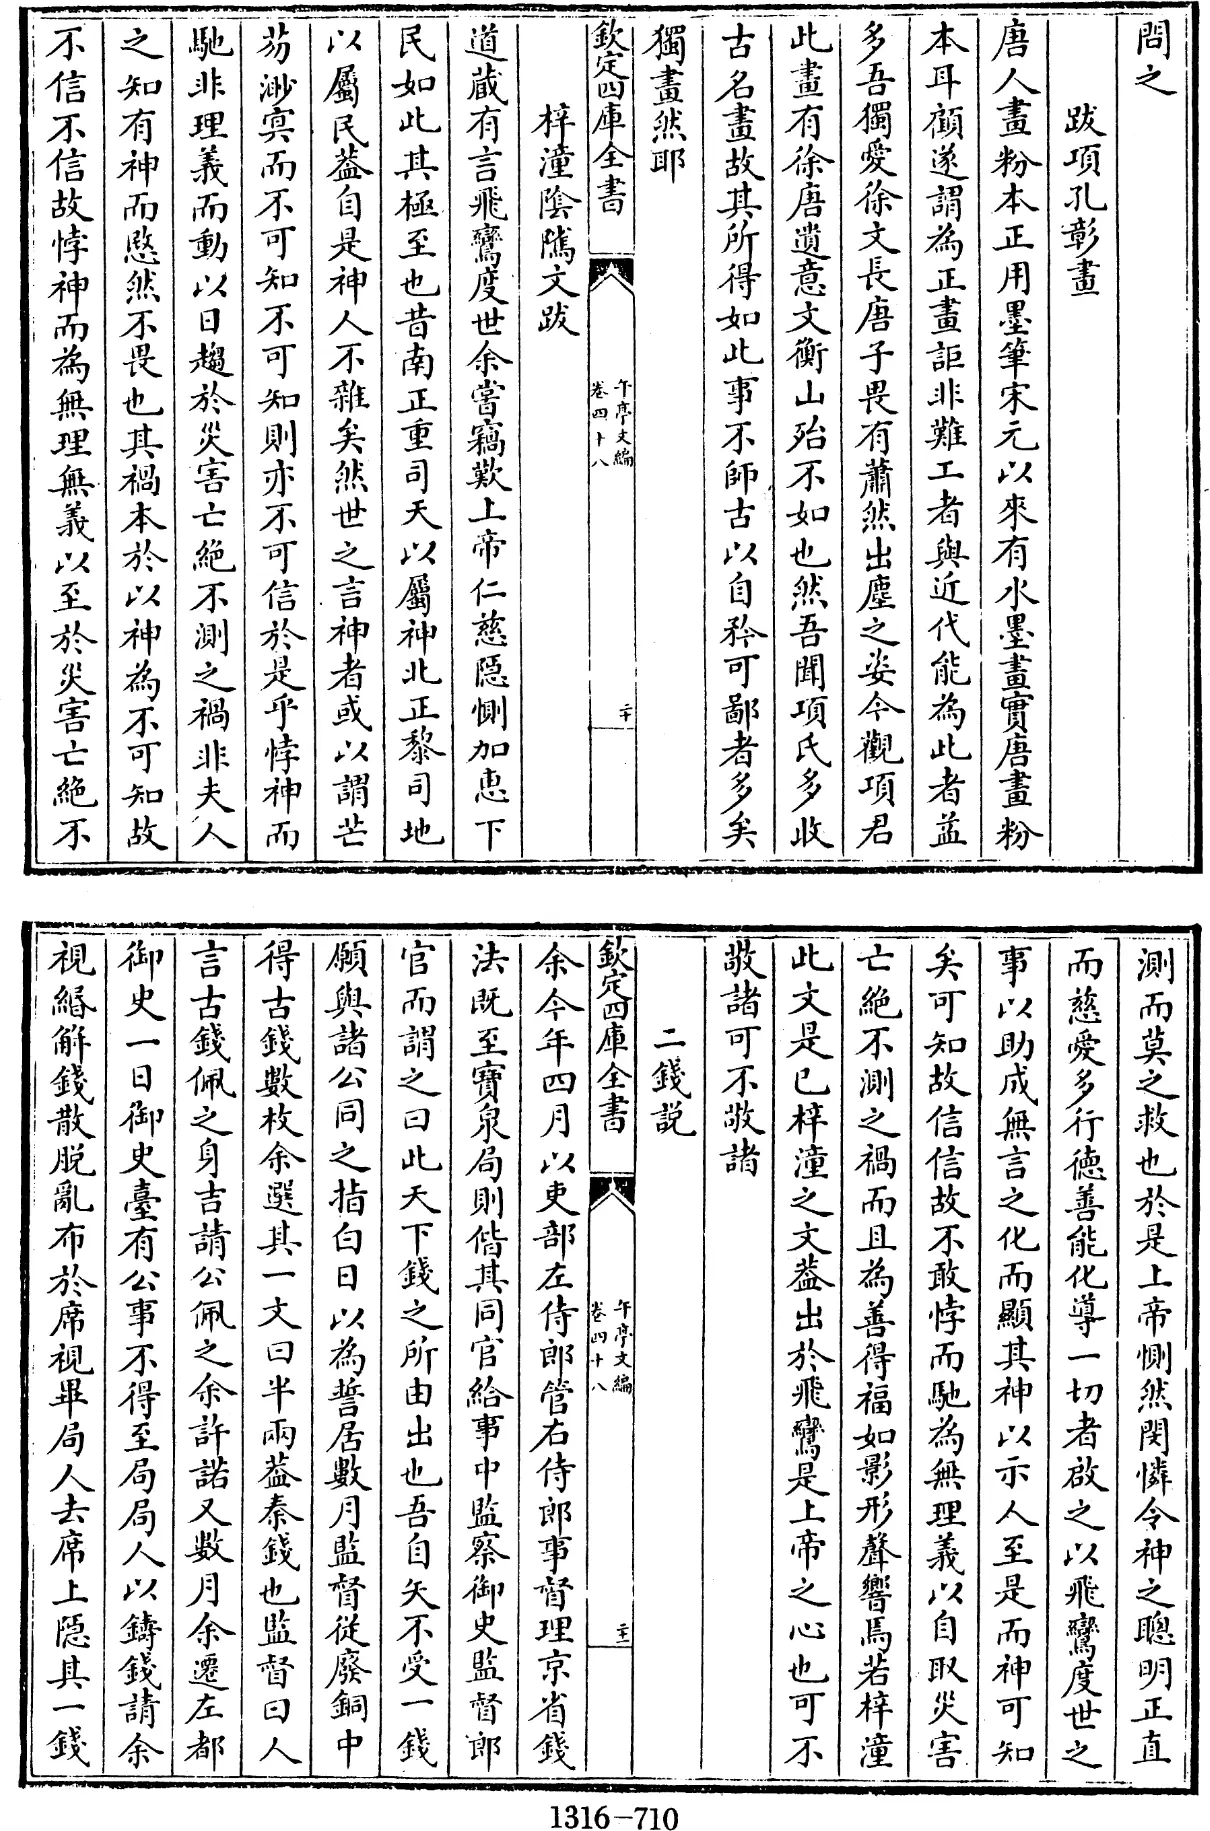 問之
跋項孔彰畫
唐人畫粉本正用墨筆宋元以來有水墨畫實唐畫粉
本耳顧遂謂為正畫詎非難工者與近代能為此者益
多吾獨愛徐文長唐子畏有蕭然出塵之姿今觀項君
此畫有徐唐遺意文衡山殆不如也然吾聞項氏多收
古名畫故其所得如此事不師古以自矜可鄙者多矣
獨畫然耶
欽定四庫全書
午亭文編
卷四十八
二十
梓潼陰騭文跋
道藏有言飛鸞度世余嘗竊歎上帝仁慈隱惻加惠下
民如此其極至也昔南正重司天以屬神北正黎司地
以屬民葢自是神人不雜矣然世之言神者或以謂芒
芴渺㝠而不可知不可知則亦不可信於是乎悖神而
馳非理義而動以日趨於災害亡絶不測之禍非夫人
之知有神而愍然不畏也其禍本於以神為不可知故
不信不信故悖神而為無理無義以至於災害亡絶不
測而莫之救也於是上帝惻然閔憐令神之聰明正直
而慈愛多行德善能化導一切者啟之以飛鸞度世之
事以助成無言之化而顯其神以示人至是而神可知
矣可知故信信故不敢悖而馳為無理義以自取災害
亡絶不測之禍而且為善得福如影形聲響焉若梓潼
此文是已梓潼之文葢出於飛鸞是上帝之心也可不
敬諸可不敬諸
二錢説
欽定四庫全書
午亭文編
卷四十八
二十一
余今年四月以吏部左侍郎管右侍郎事督理京省錢
法既至寶泉局則偕其同官給事中監察御史監督郎
官而謂之曰此天下錢之所由出也吾自矢不受一錢
願與諸公同之指白日以為誓居數月監督從廢銅中
得古錢數枚余選其一文曰半兩葢秦錢也監督曰人
言古錢佩之身吉請公佩之余許諾又數月余遷左都
御史一日御史臺有公事不得至局局人以鑄錢請余
視緡解錢散脱亂布於席視畢局人去席上隱其一錢
1316-710